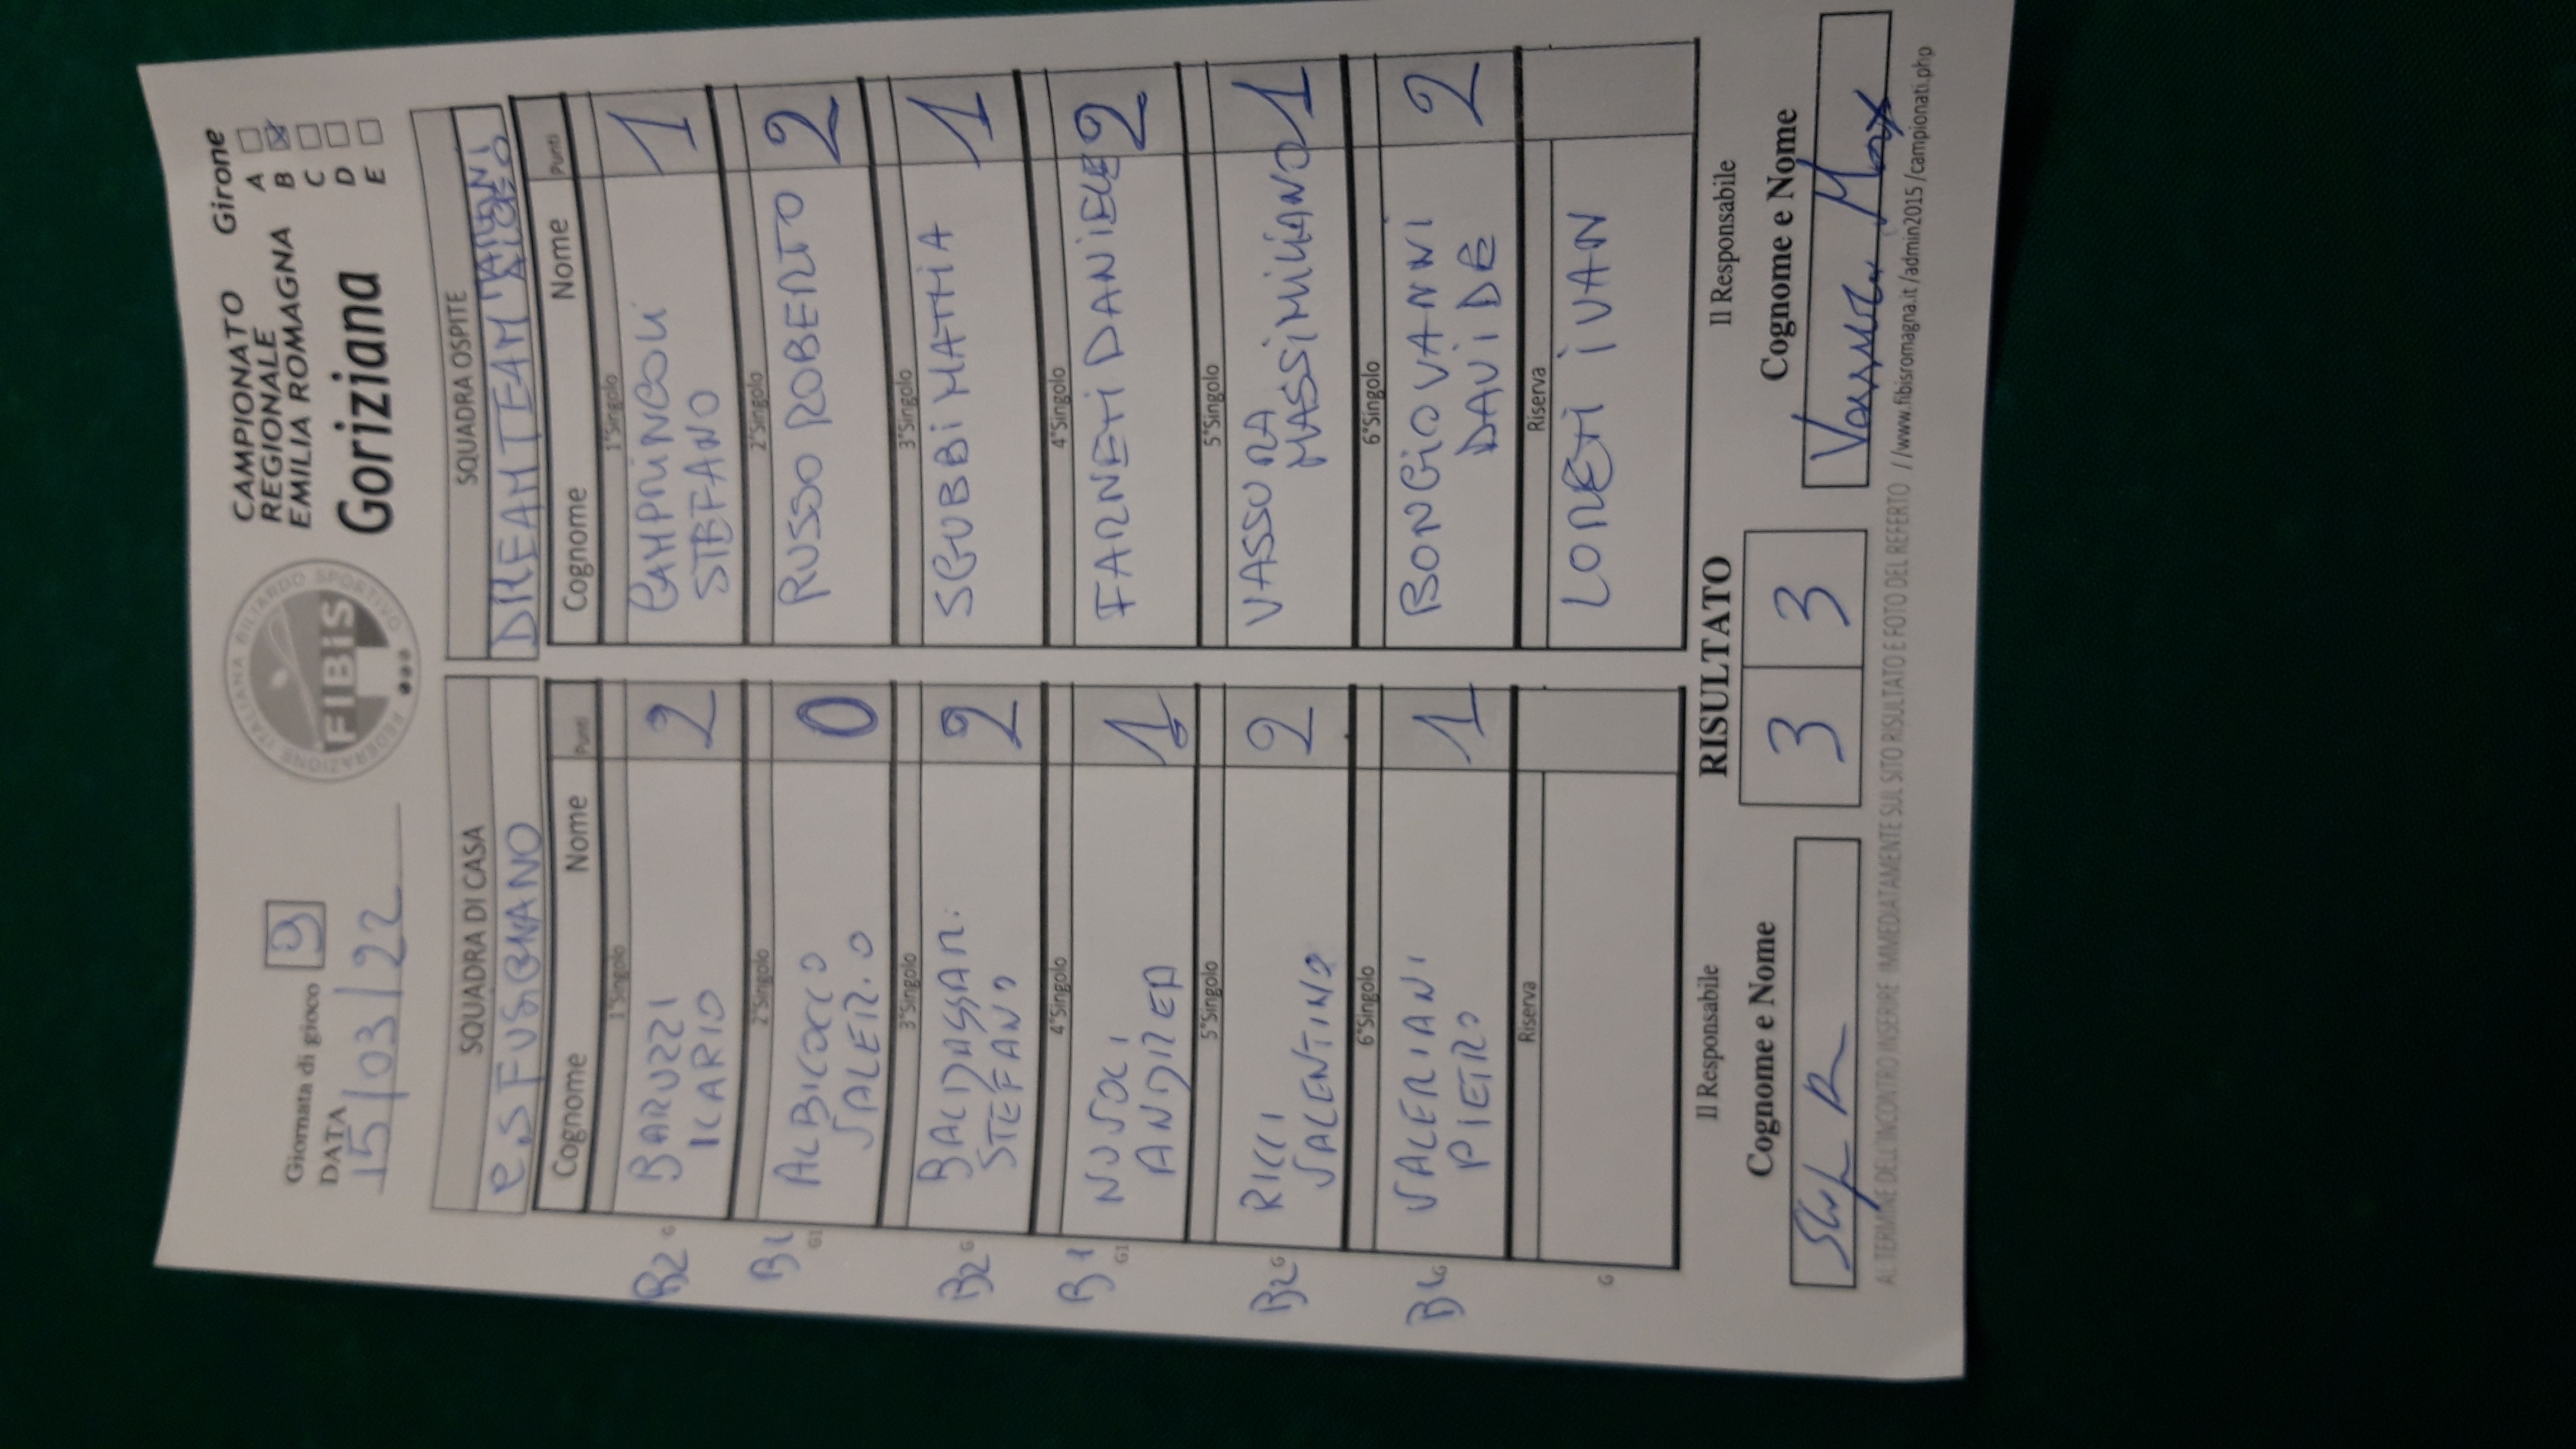 Giornata di gioco 9
DATA
15/03/22
FEDERAZIONE ITALIANA BILIARDO SPORTIVO
FIBiS
CAMPIONATO
REGIONALE
EMILIA ROMAGNA
Goriziana
Girone
A
B
C
D
E
SQUADRA DI CASA
C.S FUSIGNANO
Cognome Nome Punti
1°Singolo
B2 G BARUZZI 2
ICARIO
2°Singolo
B1 G1 ALBICOCCO 0
VALERIO
3°Singolo
B2 G BALDASSARI 2
STEFANO
4°Singolo
B1 G1 NUVOLI 1
ANDREA
5°Singolo
B2 G RICCI 2
VALENTINO
6°Singolo
B1 G VALERIANI 1
PIETRO
Riserva
G
SQUADRA OSPITE
DREAM TEAM
Cognome Nome Punti
1°Singolo
CAMPRINCOLI 1
STEFANO
2°Singolo
RUSSO ROBERTO 2
3°Singolo
SGUBBI MATTIA 1
4°Singolo
FARNETI DANIELE 2
5°Singolo
VASSURA 1
MASSIMILIANO
6°Singolo
BONGIOVANNI 2
DAVIDE
Riserva
LORETI IVAN
Il Responsabile
Cognome e Nome
RISULTATO
3 3
Il Responsabile
Cognome e Nome
Vassura Max
AL TERMINE DELL'INCONTRO INSERIRE IMMEDIATAMENTE SUL SITO RISULTATO E FOTO DEL REFERTO //www.fibisromagna.it/admin2015/campionati.php